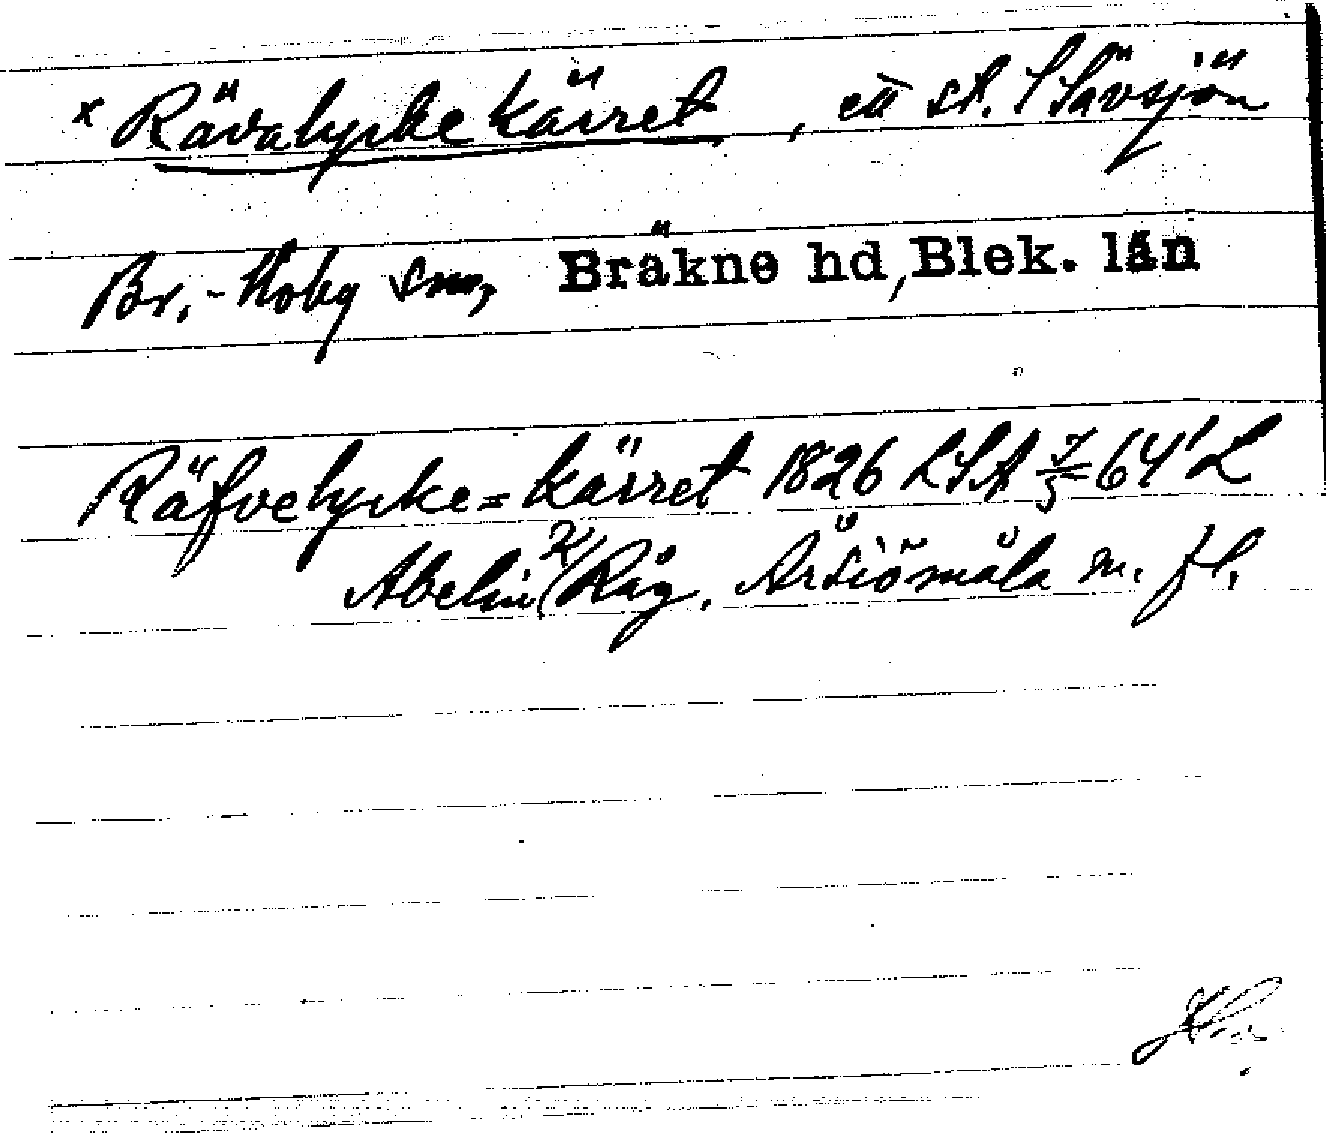 x Rävalyckekärret, ett st. i Sävsjön
Br.-Hoby sn, Bräkne hd, Blek. län
Räfvelycke=kärret 1826 LSA 64' L
Abelin Råg. Arsiömåla m. fl.